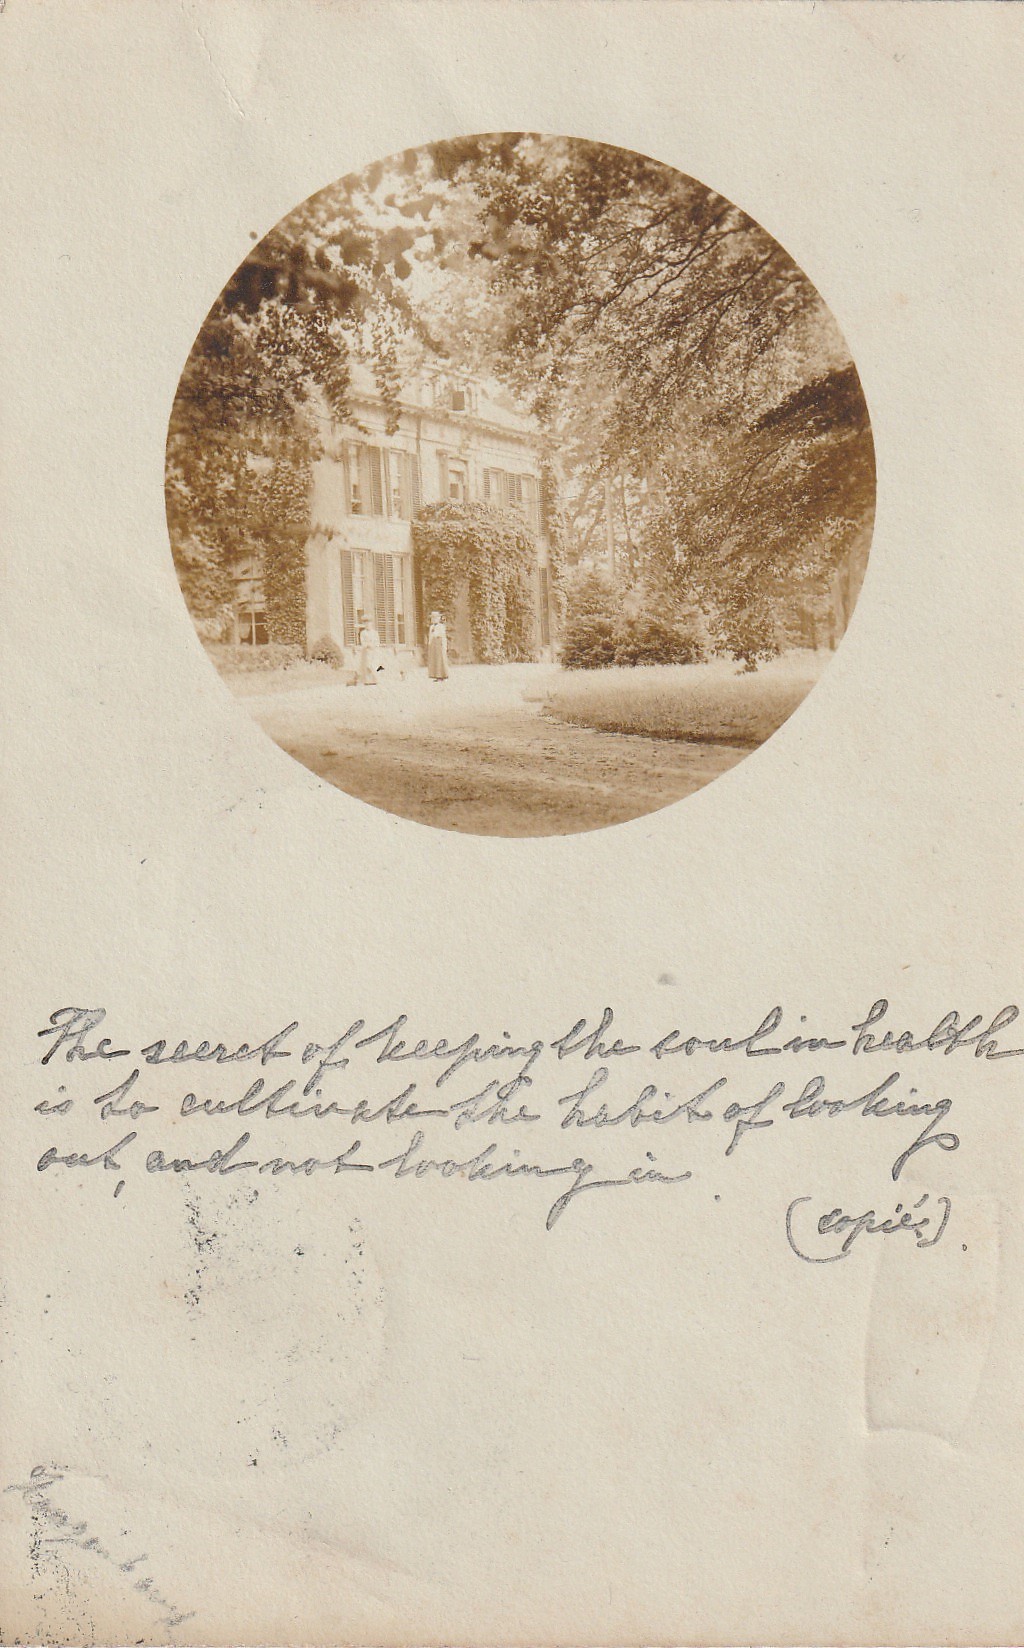 The secret of keeping the soul in health
is to cultivate the habit of looking
out, and not looking in.
(copié).